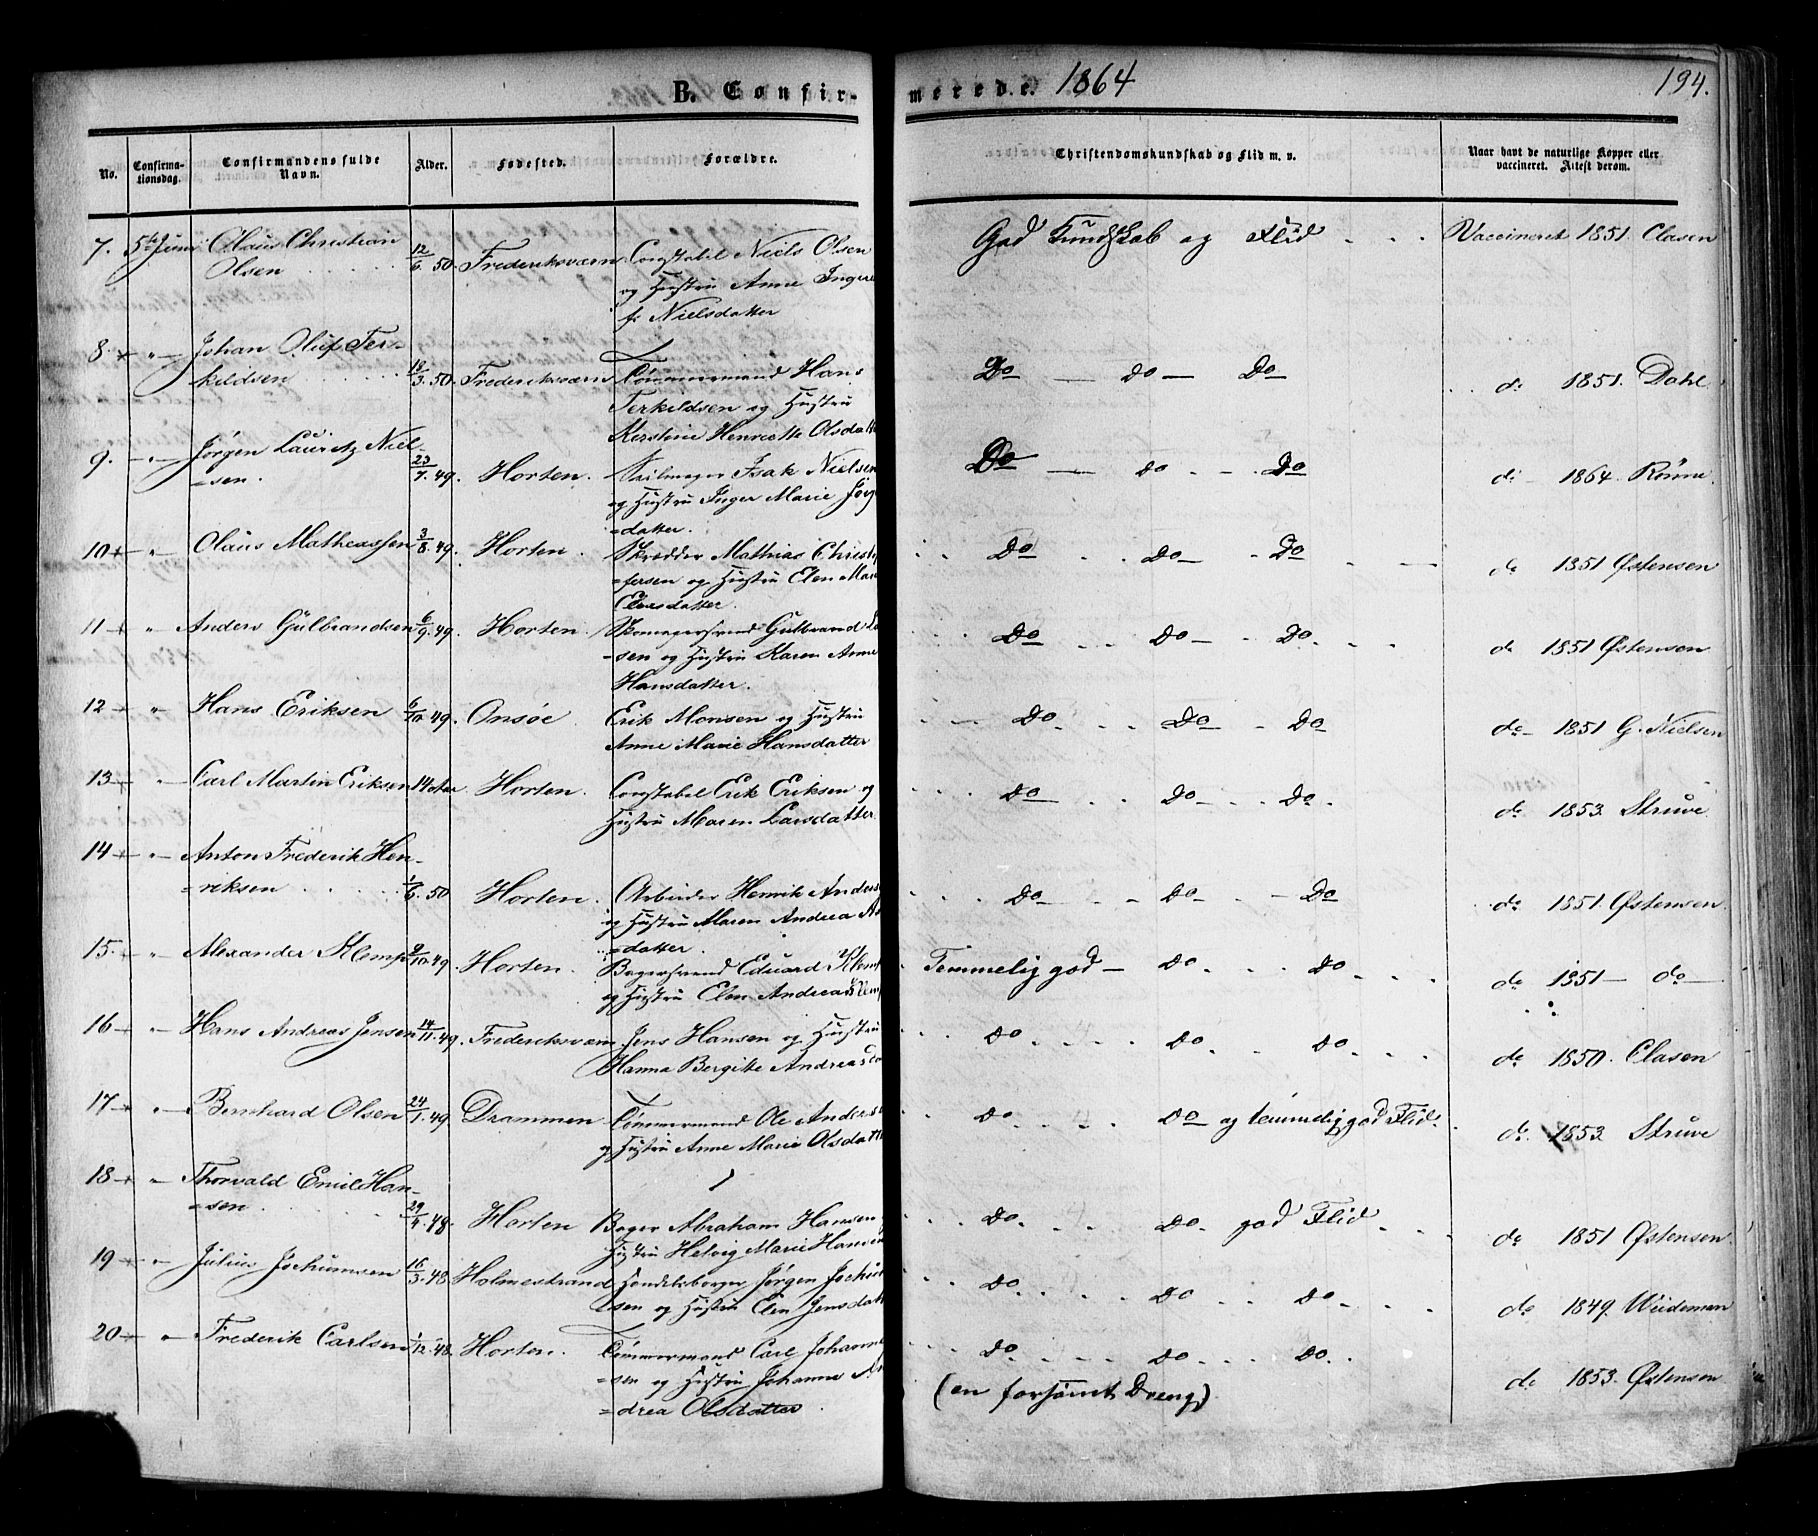 B. Confirmerede. 1864
194.
No. Confirmationsdag. Confirmandens fulde Navn. Alder. Fødested. Forældre. Christendomskundskab og Flid m. v. Naar havt de naturlige Kopper eller vaccineret. Attest derom.
7. 5te Juni Olaus Christian 12/6. 50. Frederiksværn Constabel Niels Olsen God Kundskab og Flid Vaccineret 1851. Clasen
Olsen og Hustru Anne Inger
f. Nielsdatter
8. " Johan Oluf Ter-
kildsen 18/3. 50. Frederiksværn Tömmermand Hans Do do Do do 1851. Dahl
Terkildsen og Hustru
Kerstine Henriette Olsdatt
9. " Jørgen Lauritz Niel-
=sen. 23/7. 49. Horten. Seilmager Isak Nielsen Do do Do do 1864. Rönne.
og Hustru Inger Marie Jørg
=datter.
10 " Olaus Matheassen 3/8. 49. Horten. Skrædder Mathias Christ Do Do Do do 1851 Østensen
=fersen og Hustru Elen Mar
Elensdatter.
11 " Anders Gulbrandsen 6/9. 49. Horten. Skomagersvend Gulbrand La Do Do Do. do 1851 Østensen
=sen og Hustru Karen Anne
Hansdatter.
12 " Hans Eriksen 6/10. 49. Onsøe Erik Monsen og Hustru Do Do Do do 1851 G. Nielsen
Anne Marie Hansdatter
13 " Carl Martin Eriksen 14 Aar Horten. Constabel Erik Eriksen og Do Do Do. do 1853. Struve
Hustru Maren Larsdatter.
14 " Anton Frederik Hen-
=riksen 1/6. 50 Horten. Arbeider Henrik Anders Do Do Do do 1851. Østensen.
og Hustru Maren Andrea A
=datter.
15. " Alexander Klemp 9/10. 49. Horten. Bagersvend Eduard Klemp Temmelig god Do Do do 1851 do
og Hustru Elen Andrea Klemp
16 " Hans Andreas Jensen 14/11. 49. Frederiksværn Jens Hansen og Hustru Do Do Do do 1850. Clasen
Hanna Bergitte Andreas
17 " Bernhard Olsen 24/1. 49. Drammen Tömmermand Ole Anders Do Do og temmelig god Flid. do. 1853. Struve
og Hustru Anne Marie Olsdatt
18 " Thorvald Emil Han-
=sen 29/4. 48. Horten Bager Abraham Hansen Do. Do. god Flid do 1851 Østensen
Hustru Helvig Marie Hansen
19 " Julius Jochumsen 16/3. 48. Holmestrand Handelsborger Jørgen Jochu Do Do Do do 1849. Weideman
=sen og Hustru Elen Jensdatt
20 " Frederik Carlsen 1/12. 48. Horten. Tömmermand Carl Johann Do Do Do.
=sen og Hustru Johanne An (en forsømt Dreng) do 1853. Østensen
=drea Olsdatter